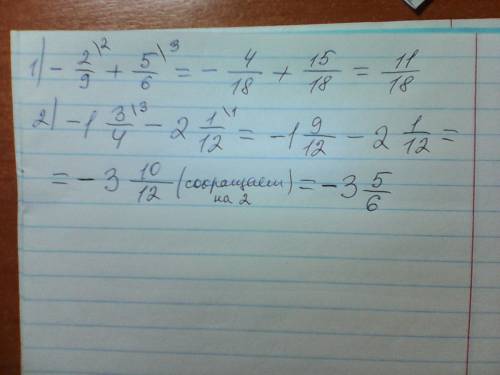 1) - 2/9 \2 + 5/6 \3 = - 4/18 + 15/18 = 11/18
2) - 1 3/4 \3 - 2 1/12 \1 = - 1 9/12 - 2 1/12 =
= - 3 10/12 (сокращаем на 2) = - 3 5/6